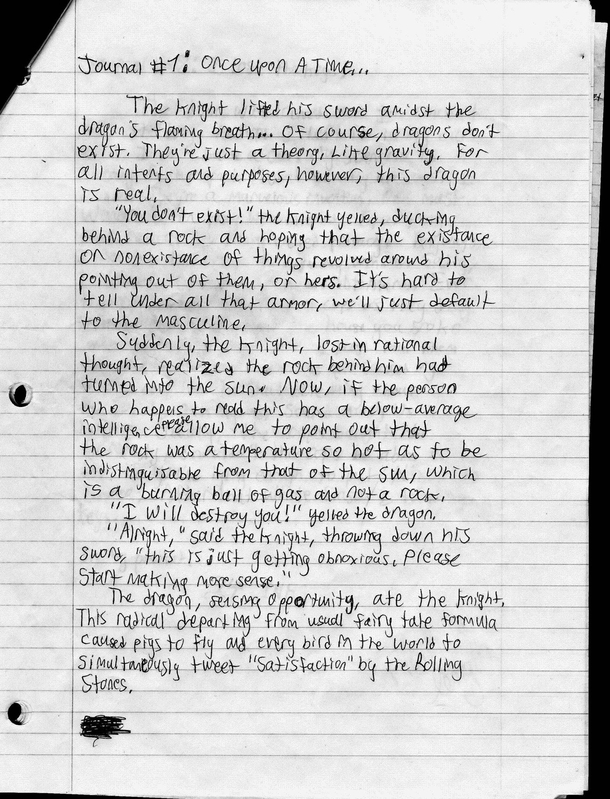 Journal #1: Once upon A Time...
The knight lifted his sword amidst the
dragon's flaming breath... Of course, dragons don't
exist. They're just a theory, like gravity. For
all intents and purposes, however, this dragon
is real.
"You don't exist!" the knight yelled, ducking
behind a rock and hoping that the existance
or nonexistance of things revolved around his
pointing out of them, or hers. It's hard to
tell under all that armor, we'll just default
to the masculine.
Suddenly, the knight, lost in rational
thought, realized the rock behind him had
turned into the sun. Now, if the person
who happens to read this has a below-average
intelligence please allow me to point out that
the rock was a temperature so hot as to be
indistinguisable from that of the sun, which
is a burning ball of gas and not a rock.
"I will destroy you!" yelled the dragon.
"Alright," said the knight, throwing down his
sword, "this is just getting obnoxious. Please
start making more sense."
The dragon, sensing opportunity, ate the knight.
This radical departing from usual fairy tale formula
caused pigs to fly and every bird in the world to
simultaneously tweet "Satisfaction" by the Rolling
Stones.